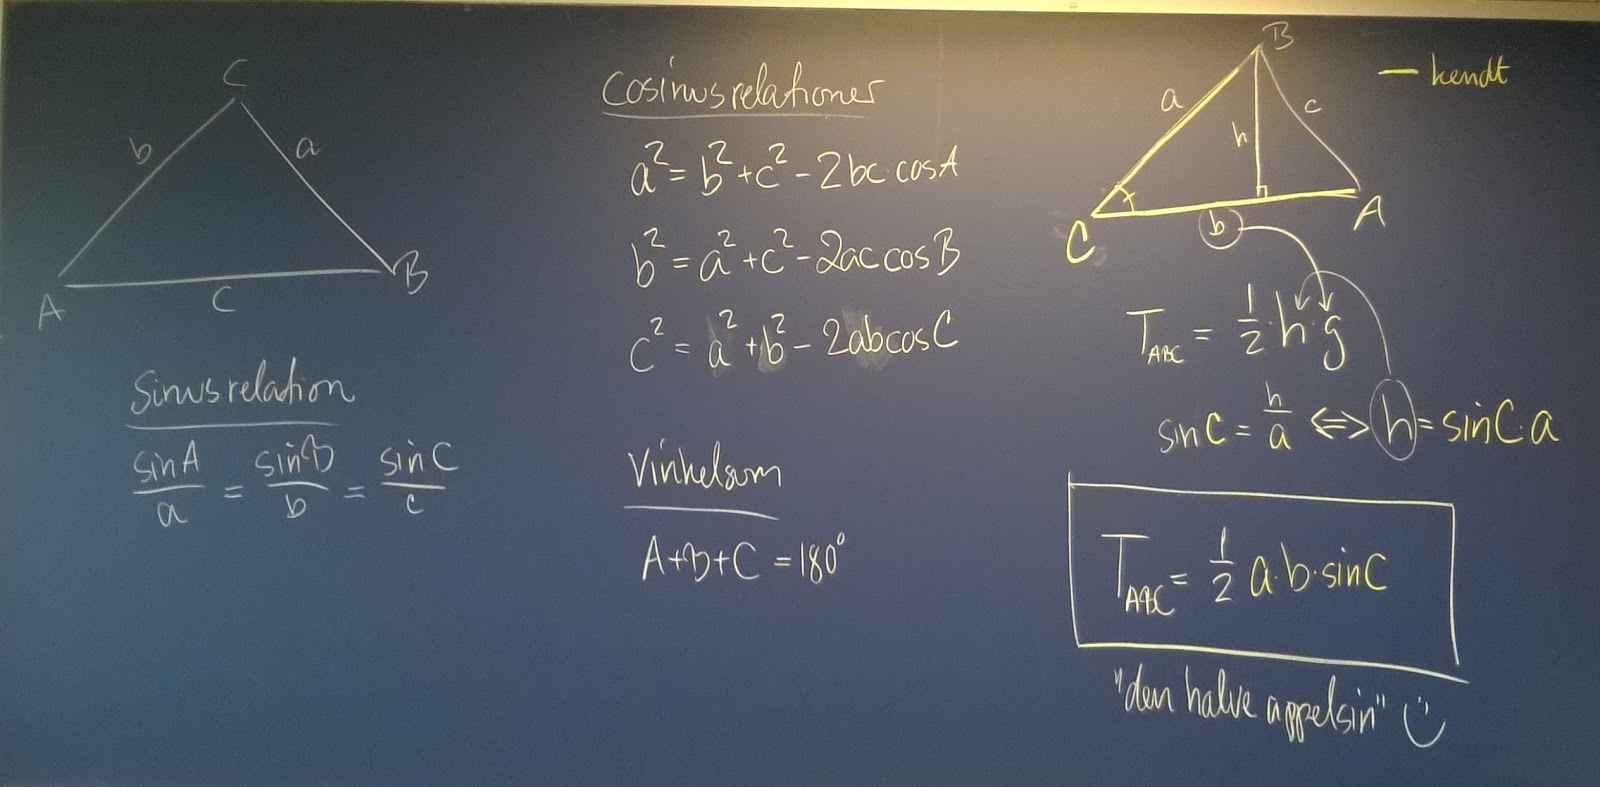 C
b
a
A
C
B
Sinusrelation
sinA/a = sinB/b = sinC/c
Cosinusrelationer
a² = b² + c² - 2bc·cosA
b² = a² + c² - 2ac cosB
c² = a² + b² - 2abcosC
Vinkelsum
A+B+C = 180°
B
a
c
h
C
b
A
— kendt
T_ABC = 1/2 · h · g
sinC = h/a ⇔ h = sinC·a
T_ABC = 1/2 a·b·sinC
"den halve appelsin"